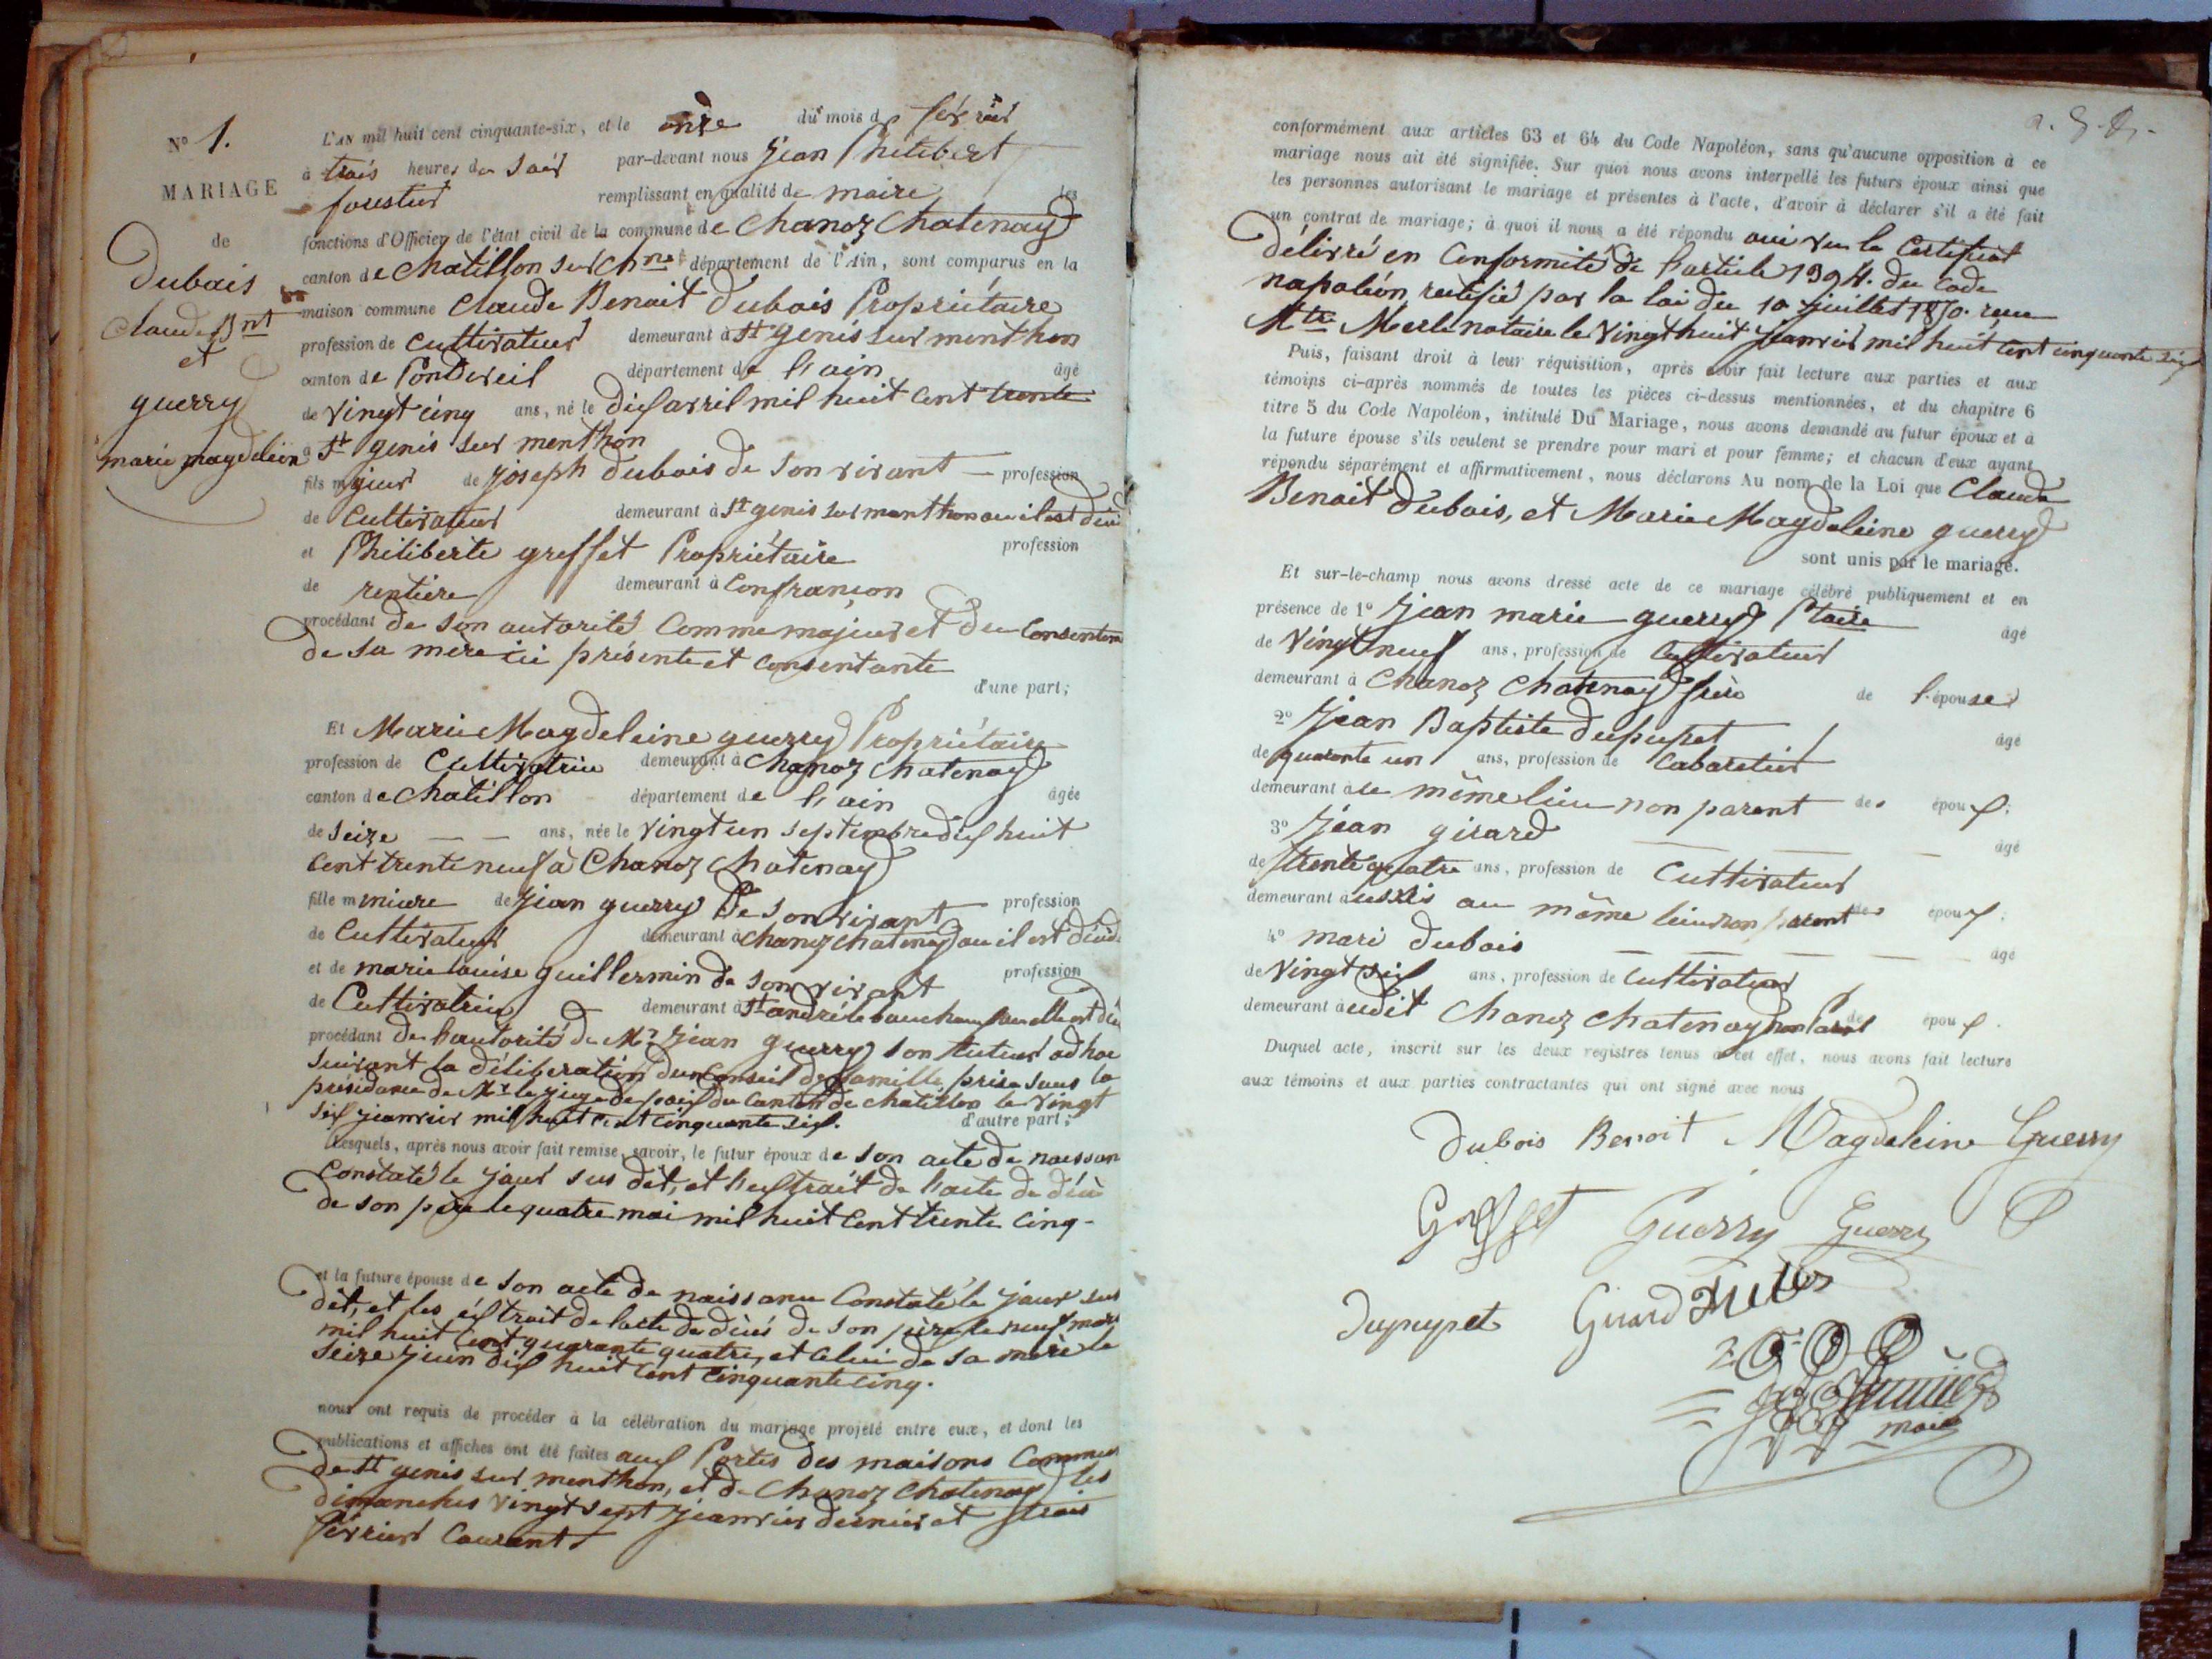 N° 1.
MARIAGE
de
Dubois
Claude Bnt
et
guerry
marie magdelein
L'AN mil huit cent cinquante-six, et le onze du mois de février
à trois heures du soir par-devant nous Jean Philibert
remplissant en qualité de maire les
fonctions d'Officier de l'état civil de la commune de Chanoz Chatenay
canton de Chatillon sur Chne département de l'Ain, sont comparus en la
maison commune Claude Benoit dubois Propriétaire
profession de cultivateur demeurant à St genis sur menthon
canton de Pontdeveil département de l'ain âgé
de vingt cinq ans, né le dix avril mil huit cent trente
a St genis sur menthon
fils majeur de joseph dubois de son vivant profession
de Cultivateur demeurant à St genis sur menthon ou il est décé
et Philiberte greffet Propriétaire profession
de rentière demeurant à Confrançon
procédant de son autorité Comme majeur et du Consentem
de sa mère ici présente et consentante
d'une part;
Et Marie Magdeleine guerry Propriétaire
profession de Cultivatrice demeurant à Chanoz Chatenay
canton de Chatillon département de l'ain âgée
de seize ans, née le vingt un septembre dix huit
cent trente neuf à Chanoz Chatenay
fille mineure de Jean guerry De son vivant profession
de Cultivateur demeurant à chanoz chatenay ou il est décédé
et de marie louise guillermin de son vivant profession
de Cultivatrice demeurant à St andré le bouchoux ou elle est déc
procédant de l'autorité de Mr Jean guerry son tuteur ad hoc
suivant la délibération du Conseil de famille prise sous la
présidence de Mr le juge de paix du Canton de chatillon le vingt
six janvier mil huit cent cinquante six. d'autre part;
Lesquels, après nous avoir fait remise, savoir, le futur époux de son acte de naissan
Constaté le jour sus dit, et l'extrait de l'acte de décè
de son père le quatre mai mil huit Cent trente cinq-
et la future épouse de son acte de naissance Constaté le jour sus
dit, et les extrait de lacte de décès de son père le neuf mars
mil huit Cent quarante quatre, et celui de sa mère le
seize juin dix huit cent cinquante cinq.
nous ont requis de procéder à la célébration du mariage projeté entre eux, et dont les
publications et affiches ont été faites aux Portes des maisons Commun
de St genis sur menthon, et de Chanoz Chatenay les
dimanches vingt sept janvier dernier et trois
février Courant
conformément aux articles 63 et 64 du Code Napoléon, sans qu'aucune opposition à ce
mariage nous ait été signifiée. Sur quoi nous avons interpellé les futurs époux ainsi que
les personnes autorisant le mariage et présentes à l'acte, d'avoir à déclarer s'il a été fait
un contrat de mariage; à quoi il nous a été répondu oui vu le Certificat
délivré en Conformité de l'article 1394. du Code
napoléon, rectifié par la loi du 10 juillet 1850. reçu
Mtre Merle notaire le vingt huit janvier mil huit cent cinquante six
Puis, faisant droit à leur réquisition, après avoir fait lecture aux parties et aux
témoins ci-après nommés de toutes les pièces ci-dessus mentionnées, et du chapitre 6
titre 5 du Code Napoléon, intitulé Du Mariage, nous avons demandé au futur époux et à
la future épouse s'ils veulent se prendre pour mari et pour femme; et chacun d'eux ayant
répondu séparément et affirmativement, nous déclarons Au nom de la Loi que Claude
Benoit dubois, et Marie Magdeleine guerry
sont unis par le mariage.
Et sur-le-champ nous avons dressé acte de ce mariage célébré publiquement et en
présence de 1° Jean marie guerry Ptaire âgé
de vingt neuf ans, profession de Cultivateur
demeurant à Chanoz Chatenay frère de l'épouse
2° Jean Baptiste dupupet âgé
de quarante un ans, profession de Cabaretier
demeurant à ce même lieu non parent des époux;
3° Jean girard âgé
de trente quatre ans, profession de Cultivateur
demeurant à aussi au même lieu non parent des époux;
4° mari dubois âgé
de vingt six ans, profession de Cultivateur
demeurant à udit Chanoz Chatenay non parent des époux.
Duquel acte, inscrit sur les deux registres tenus à cet effet, nous avons fait lecture
aux témoins et aux parties contractantes qui ont signé avec nous
Dubois Benoit Magdeleine Guerry
Greffet Guerry Guerry
Dupupet Girard
maire